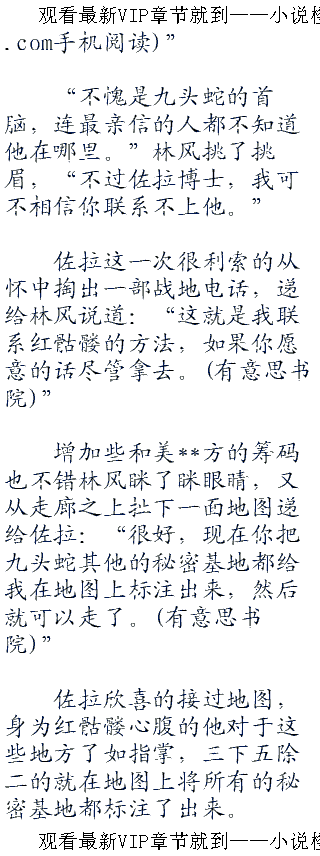 观看最新VIP章节就到——小说楼
.com手机阅读)”
“不愧是九头蛇的首
脑，连最亲信的人都不知道
他在哪里。”林风挑了挑
眉，“不过佐拉博士，我可
不相信你联系不上他。”
佐拉这一次很利索的从
怀中掏出一部战地电话，递
给林风说道：“这就是我联
系红骷髅的方法，如果你愿
意的话尽管拿去。(有意思书
院)”
增加些和美**方的筹码
也不错林风眯了眯眼睛，又
从走廊之上扯下一面地图递
给佐拉：“很好，现在你把
九头蛇其他的秘密基地都给
我在地图上标注出来，然后
就可以走了。(有意思书
院)”
佐拉欣喜的接过地图，
身为红骷髅心腹的他对于这
些地方了如指掌，三下五除
二的就在地图上将所有的秘
密基地都标注了出来。
观看最新VIP章节就到——小说楼